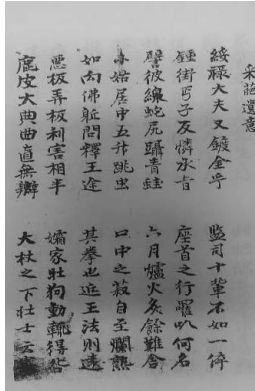 采葑遺意
綏祿大夫又鍍金乎 監司十輩不如一倅
鍾街丐子反憐承旨 座首之行喝叭何名
譬彼綠蛇尻躡青蛙 六月爐火灸餘難舍
小姑居中五升跳出 口中之蔱自至爛熟
如向佛軀問釋王途 其拳也近王法則遠
惡板弄板利害相半 孀家壯狗動輒得咎
鹿皮大典曲直無辨 大杖之下壯士